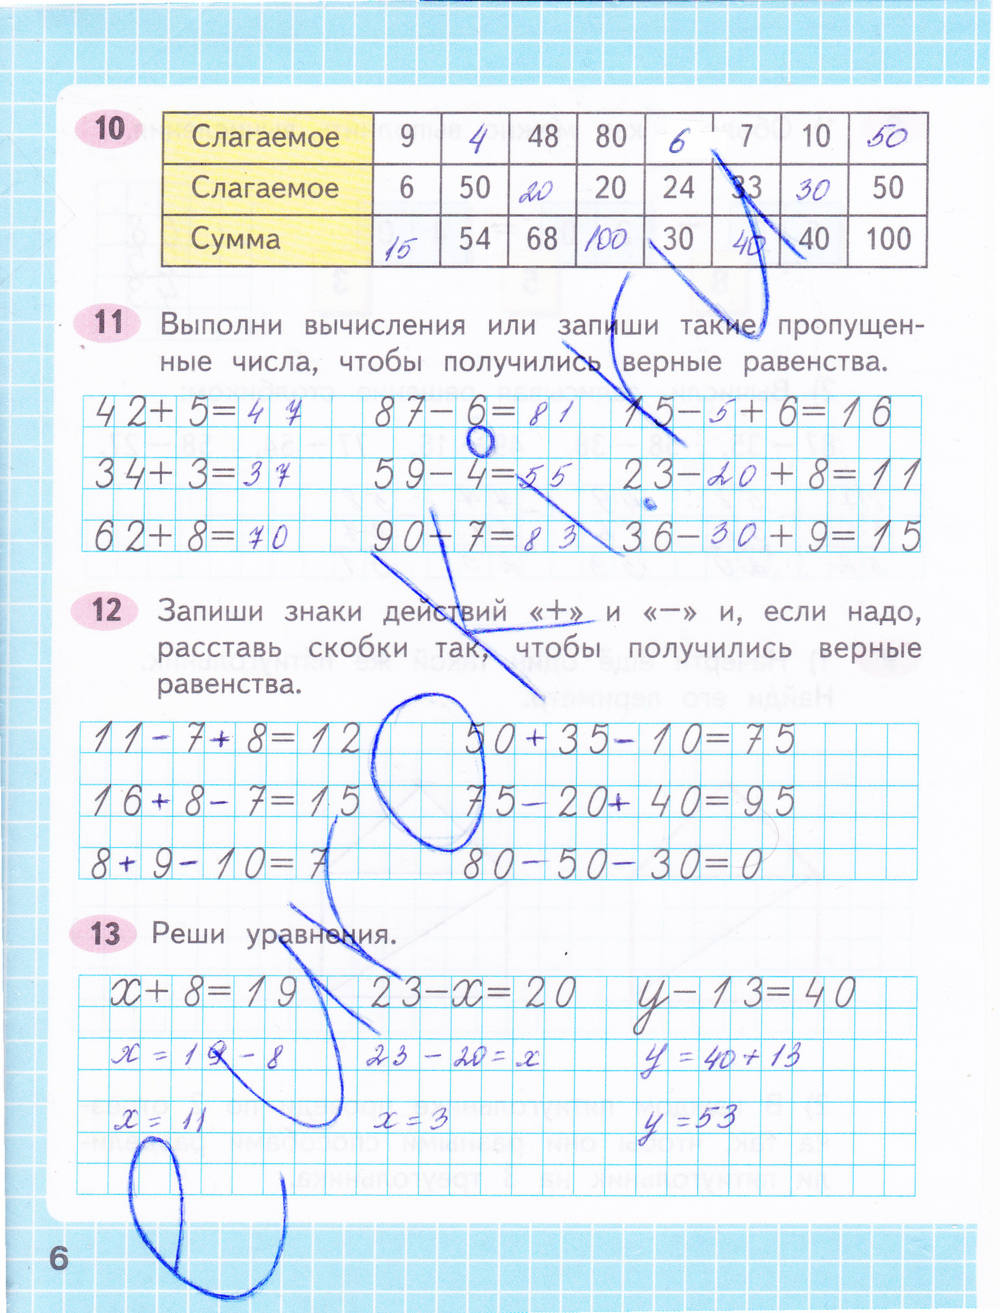 10
Слагаемое 9 4 48 80 6 7 10 50
Слагаемое 6 50 20 20 24 33 30 50
Сумма 15 54 68 100 30 40 40 100
11 Выполни вычисления или запиши такие пропущен-
ные числа, чтобы получились верные равенства.
42+5=47 87-6=81 15-5+6=16
34+3=37 59-4=55 23-20+8=11
62+8=70 90-7=83 36-30+9=15
12 Запиши знаки действий «+» и «—» и, если надо,
расставь скобки так, чтобы получились верные
равенства.
11-7+8=12 50+35-10=75
16+8-7=15 75-20+40=95
8+9-10=7 80-50-30=0
13 Реши уравнения.
x+8=19 23-x=20 y-13=40
x=19-8 23-20=x y=40+13
x=11 x=3 y=53
6